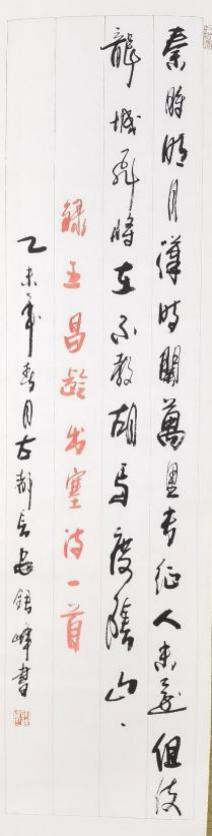 秦時明月漢時關萬里長征人未還但使
龍城飛將在不教胡馬度陰山、
錄王昌齡出塞詩一首
乙未年春月古都長安峰書